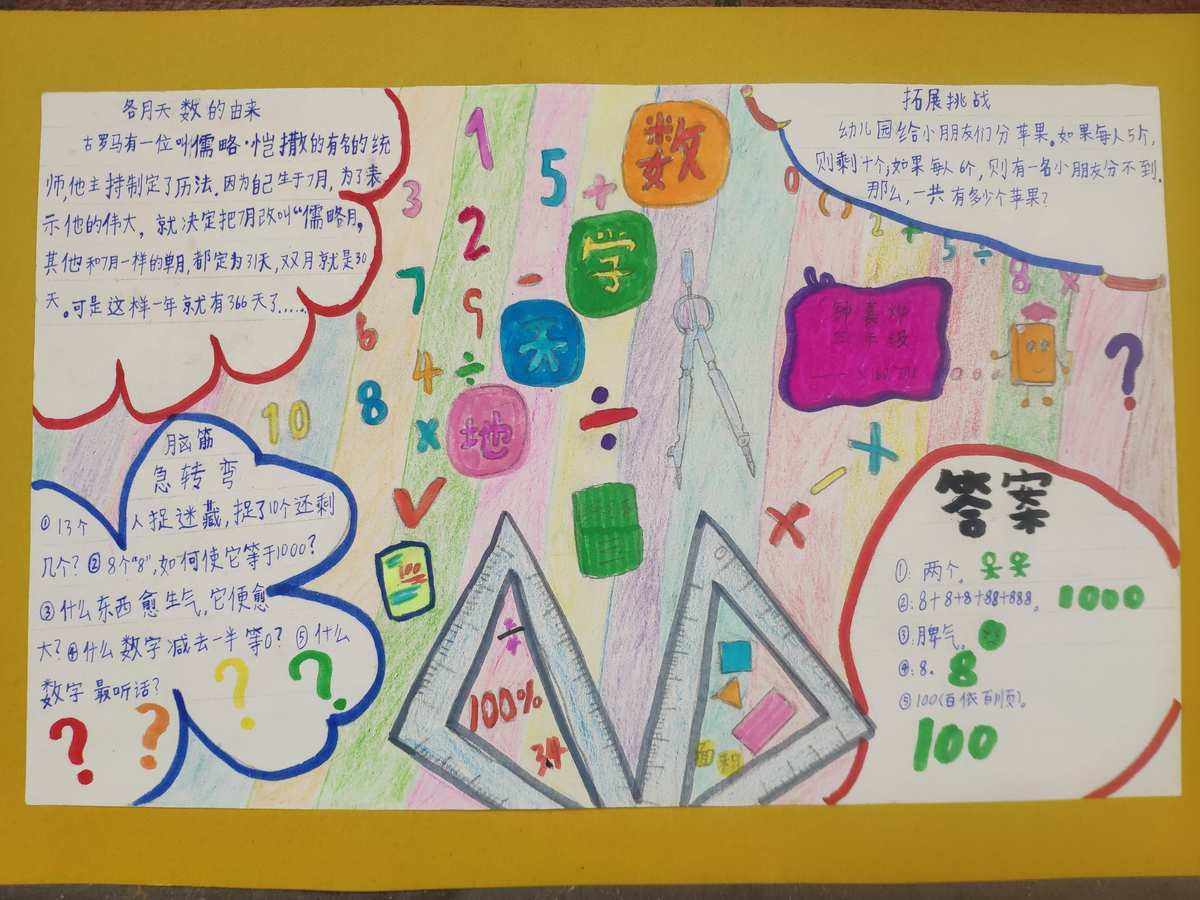 各月天数的由来
古罗马有一位叫儒略·恺撒的有名的统
师,他主持制定了历法。因为自己生于7月,为了表
示他的伟大,就决定把7月改叫“儒略月,
其他和7月一样的单月,都定为31天,双月就是30
天。可是这样一年就有366天了......
脑筋
急转弯
①13个人捉迷藏,捉了10个还剩
几个?②8个“8”,如何使它等于1000?
③什么东西愈生气,它便愈
大?④什么数字减去一半等0?⑤什么
数字最听话?
? ? ? ?
1
5
3
2
7
9
6
4
8
10
+
-
÷
×
数
学
天
地
÷
100
÷
100%
34
面积
拓展挑战
幼儿园给小朋友们分苹果。如果每人5个,
则剩十个;如果每人6个,则有一名小朋友分不到.
那么,一共有多少个苹果?
0
2 + 5 ÷
8 ×
三年级
?
+
-
×
答案
①:两个。
②:8+8+8+88+888。 1000
③:脾气。
④:8。 8
⑤100(百依百顺)。
100